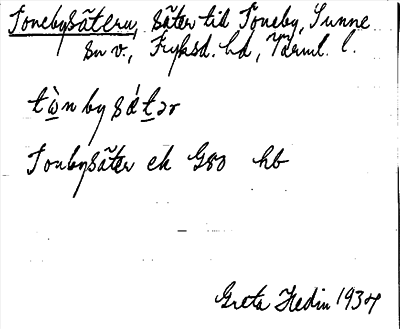 Tonebysätern, säter till Toneby, Sunne
sn v., Fryksd. hd, Värml. l.
tò̱n by sá̱t̲ər
Tonbysäter ek G80 hb
Greta Hedin 1934